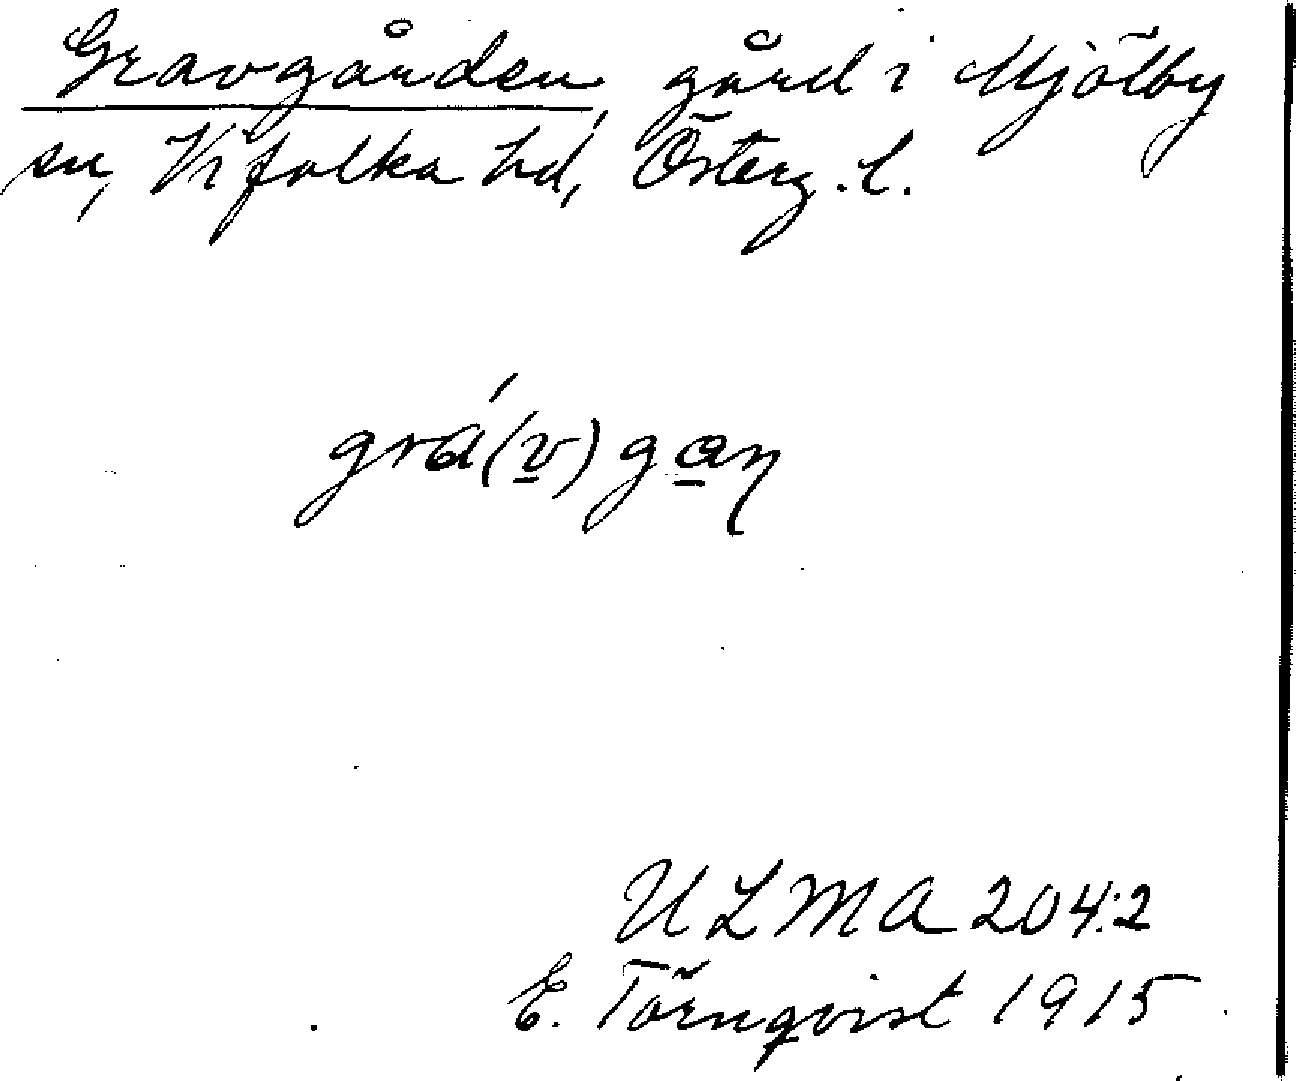 Gravgården, gård i Mjölby
sn, Vifolka hd, Österg. l.
grá(v)gaɳ
ULMA 204:2
E. Törnqvist 1915